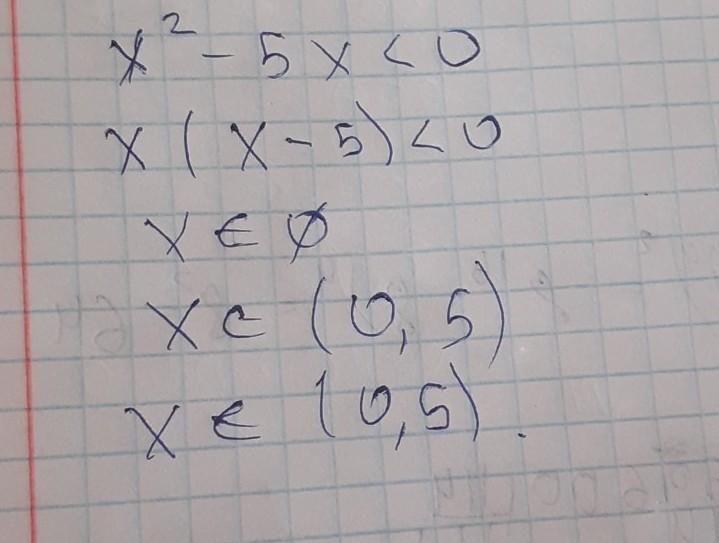 x² - 5x < 0
x(x - 5) < 0
x ∈ ∅
x ∈ (0, 5)
x ∈ (0, 5).